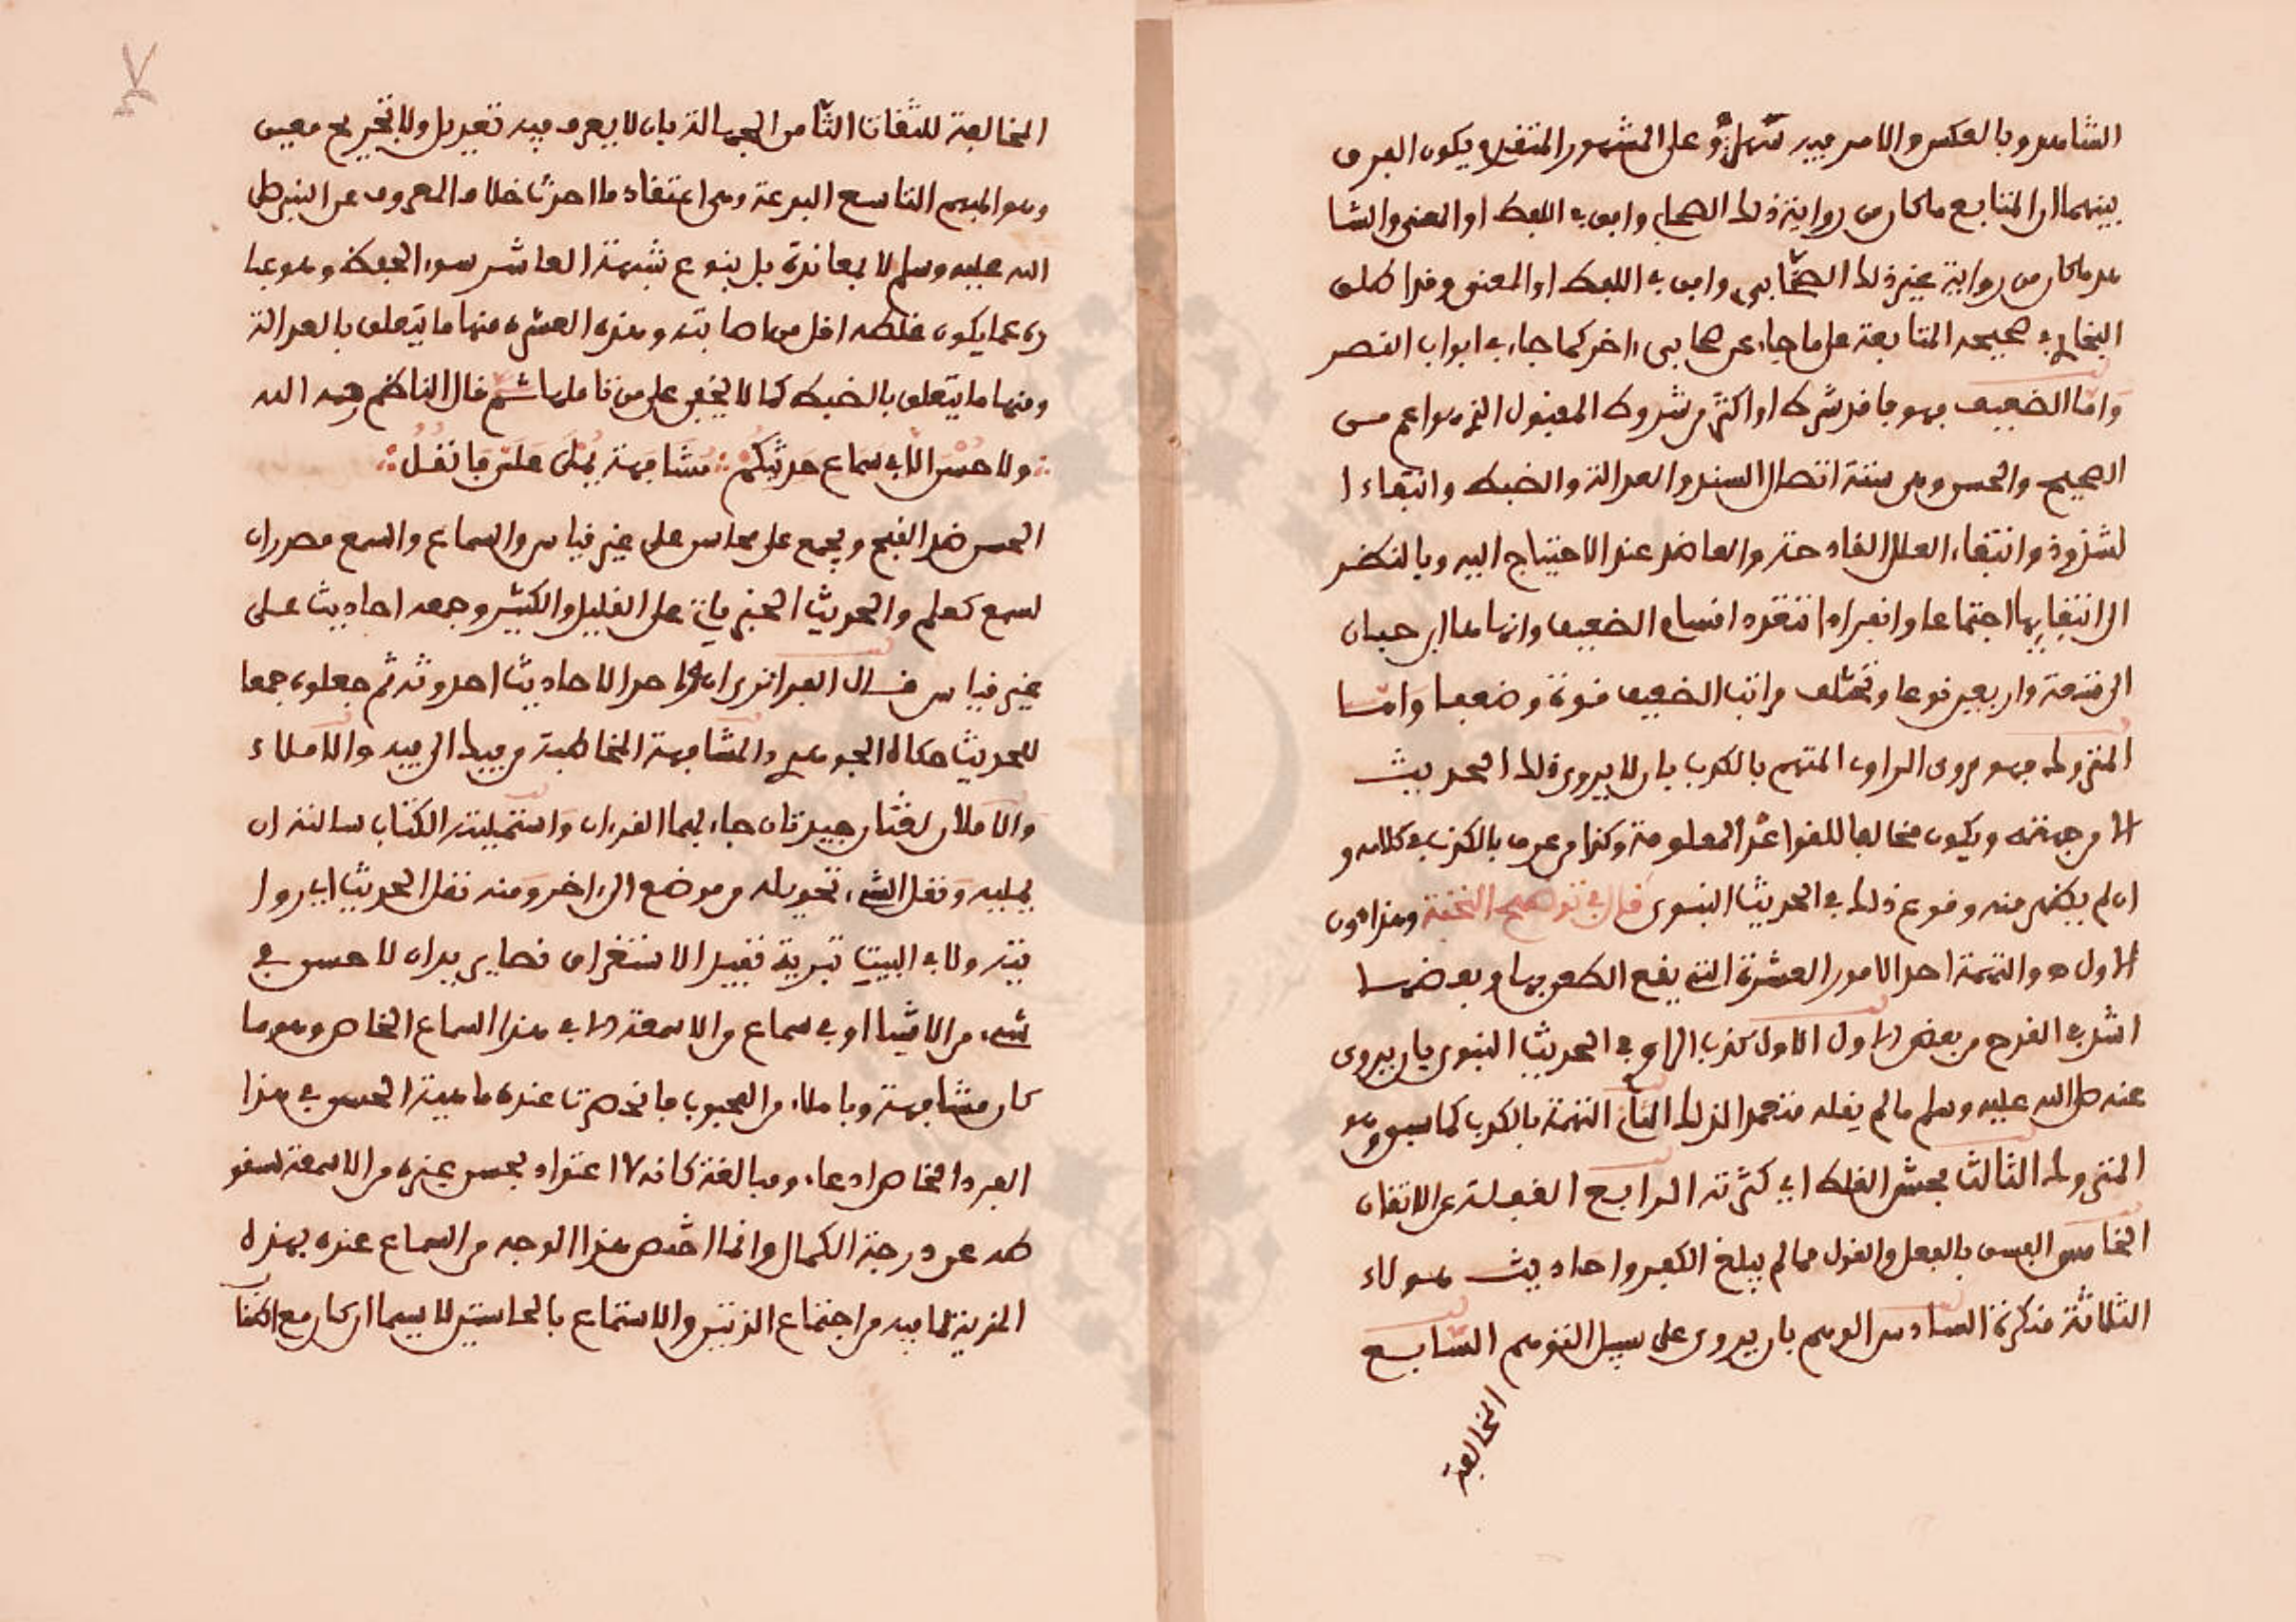 الشاهد وبالعكس والامر فيه سهل وعلى المشهور المتقدم يكون الفرق
بينهما ان المتابع ما كان من رواية ذلك الصحابي وافق في اللفظ او المعنى والشا
هد ما كان من رواية غير ذلك الصحابي وافق في اللفظ او المعنى وقد اطلق
البخاري في صحيحه المتابعة على ما جاء عن صحابي اخر كما جاء في ابواب القصر
واما الضعيف فهو ما فقد شرطا او اكثر من شروط المقبول الذي هو اعم من
الصحيح والحسن وهي ستة اتصال السند والعدالة والضبط وانتفاء ا
لشذوذ وانتفاء العلل القادحة والعاضد عند الاحتياج اليه وبالنظر
الى انتفايها اجتماعا وانفرادا تتعدد اقسام الضعيف وانهاها ابن حبان
الى تسعة واربعين نوعا وتختلف مراتب الضعيف قوة وضعفا واما
المتروك فهو مروى الراوى المتهم بالكذب بان لا يروى ذلك الحديث
الا من جهته ويكون مخالفا للقواعد المعلومة وكذا من عرف بالكذب في كلامه و
ان لم يظهر منه وقوع ذلك في الحديث النبوى قال في توضيح النخبة وهذا دون
الاول والتهمة احد الامور العشرة التي يقع الطعن بها وبعضها
اشد في القدح من بعض الاول كذب الراوي في الحديث النبوى بان يروى
عنه صلى الله عليه وسلم ما لم يقله متعمدا لذلك الثاني التهمة بالكذب كما سبق وهو
المتروك الثالث فحش الغلط اي كثرته الرابع الغفلة عن الاتقان
الخامس الفسق بالفعل والقول مما لم يبلغ الكفر واحاديث هولاء
الثلاثة منكرة السادس الوهم بان يروى على سبيل التوهم السابع
المخالفة
المخالفة للثقات الثامن الجهالة بان لا يعرف فيه تعديل ولا تجريح معين
وهو المبهم التاسع البدعة وهي اعتقاد ما احدث خلاف المعروف عن النبي صلى
الله عليه وسلم لا بمعاندة بل بنوع شبهة العاشر سوء الحفظ وهو عبا
رة عما يكون غلطه اقل من اصابته وهذه العشرة منها ما يتعلق بالعدالة
ومنها ما يتعلق بالضبط كما لا يخفى على من تاملها ثم قال الناظم رحمه الله
ولا حسن الا سماع حديثكم مشافهة يملى علي فانقل
الحسن ضد القبيح ويجمع على محاسن على غير قياس والسماع والسمع مصدران
لسمع كعلم والحديث الخبر ياتي على القليل والكثير وجمعه احاديث على
غير قياس قال الفرا نرى ان واحد الاحاديث احدوثة ثم جعلوه جمعا
للحديث حكاه الجوهري والمشافهة المخاطبة من فيك الى فيه والاملاء
والاملال لغتان جيدتان جاء بهما القرءان واستمليته الكتاب سالته ان
يمليه ونقل الشيء تحويله من موضع الى اخر ومنه نقل الحديث اي روا
يته ولا في البيت تبرية تفيد الاستغراق نصا يريد ان لا حسن في
شيء من الاشيا او في سماع من الاسمعة الا في هذا السماع الخاص وهو ما
كان مشافهة وباملاء من المحبوب فانحصرت عنده ماهية الحسن في هذا
الفرد الخاص ادعاء ومبالغة كانه لا اعتداد بحسن غيره من الاسمعة لسقو
طه عن درجة الكمال وانما اختص هذا الوجه من السماع عنده بهذه
المزية لما فيه من اجتماع الذتين والاستماع بالحاستين لا سيما ان كان مع الكتا